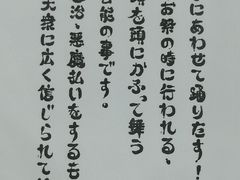 にあわせて踊りだす!
お祭の時に行われる、
を頭にかぶって舞う
芸能の事です。
治、悪魔払いをするも
大衆に広く信じられて